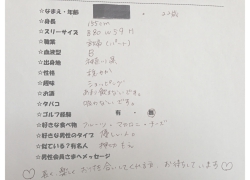 ☆なまえ・年齢 22歳
☆身長 155cm
☆スリーサイズ B80 W59 H
☆職業 (パート)
☆血液型 B
☆出身地 神奈川県
☆性格 穏やか
☆趣味 ショッピング
☆お酒 あまり飲まないです。
☆タバコ 吸わないです。
☆ゴルフ経験 有・無
☆好きな食べ物 フルーツ・マカロニ・チーズ
☆好きな男性のタイプ 優しい人
☆似ている?有名人
☆男性会員さまへメッセージ
長く、楽しくお付き合いしてくれる方、お待ちしています♡